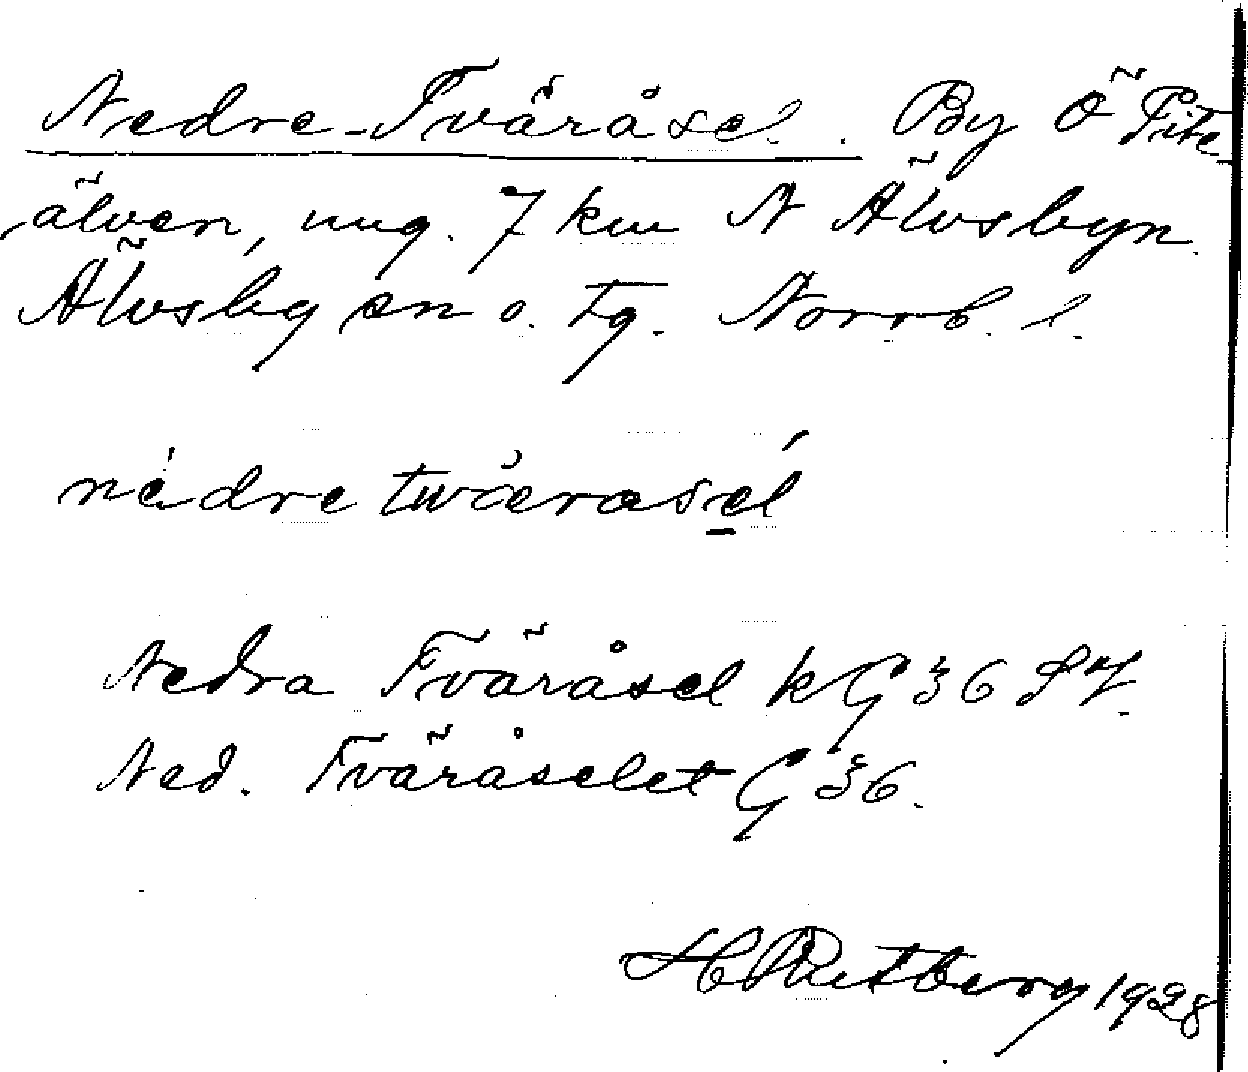 Nedre-Tväråsel. By Ö Pite-
älven, ung. 7 km N Älvsbyn.
Älvsby sn o. tg. Norrb. l.
nedre tvärasel
Nedra Tväråsel k G 36
Ned. Tväråselet G 36.
H Rutberg 1928